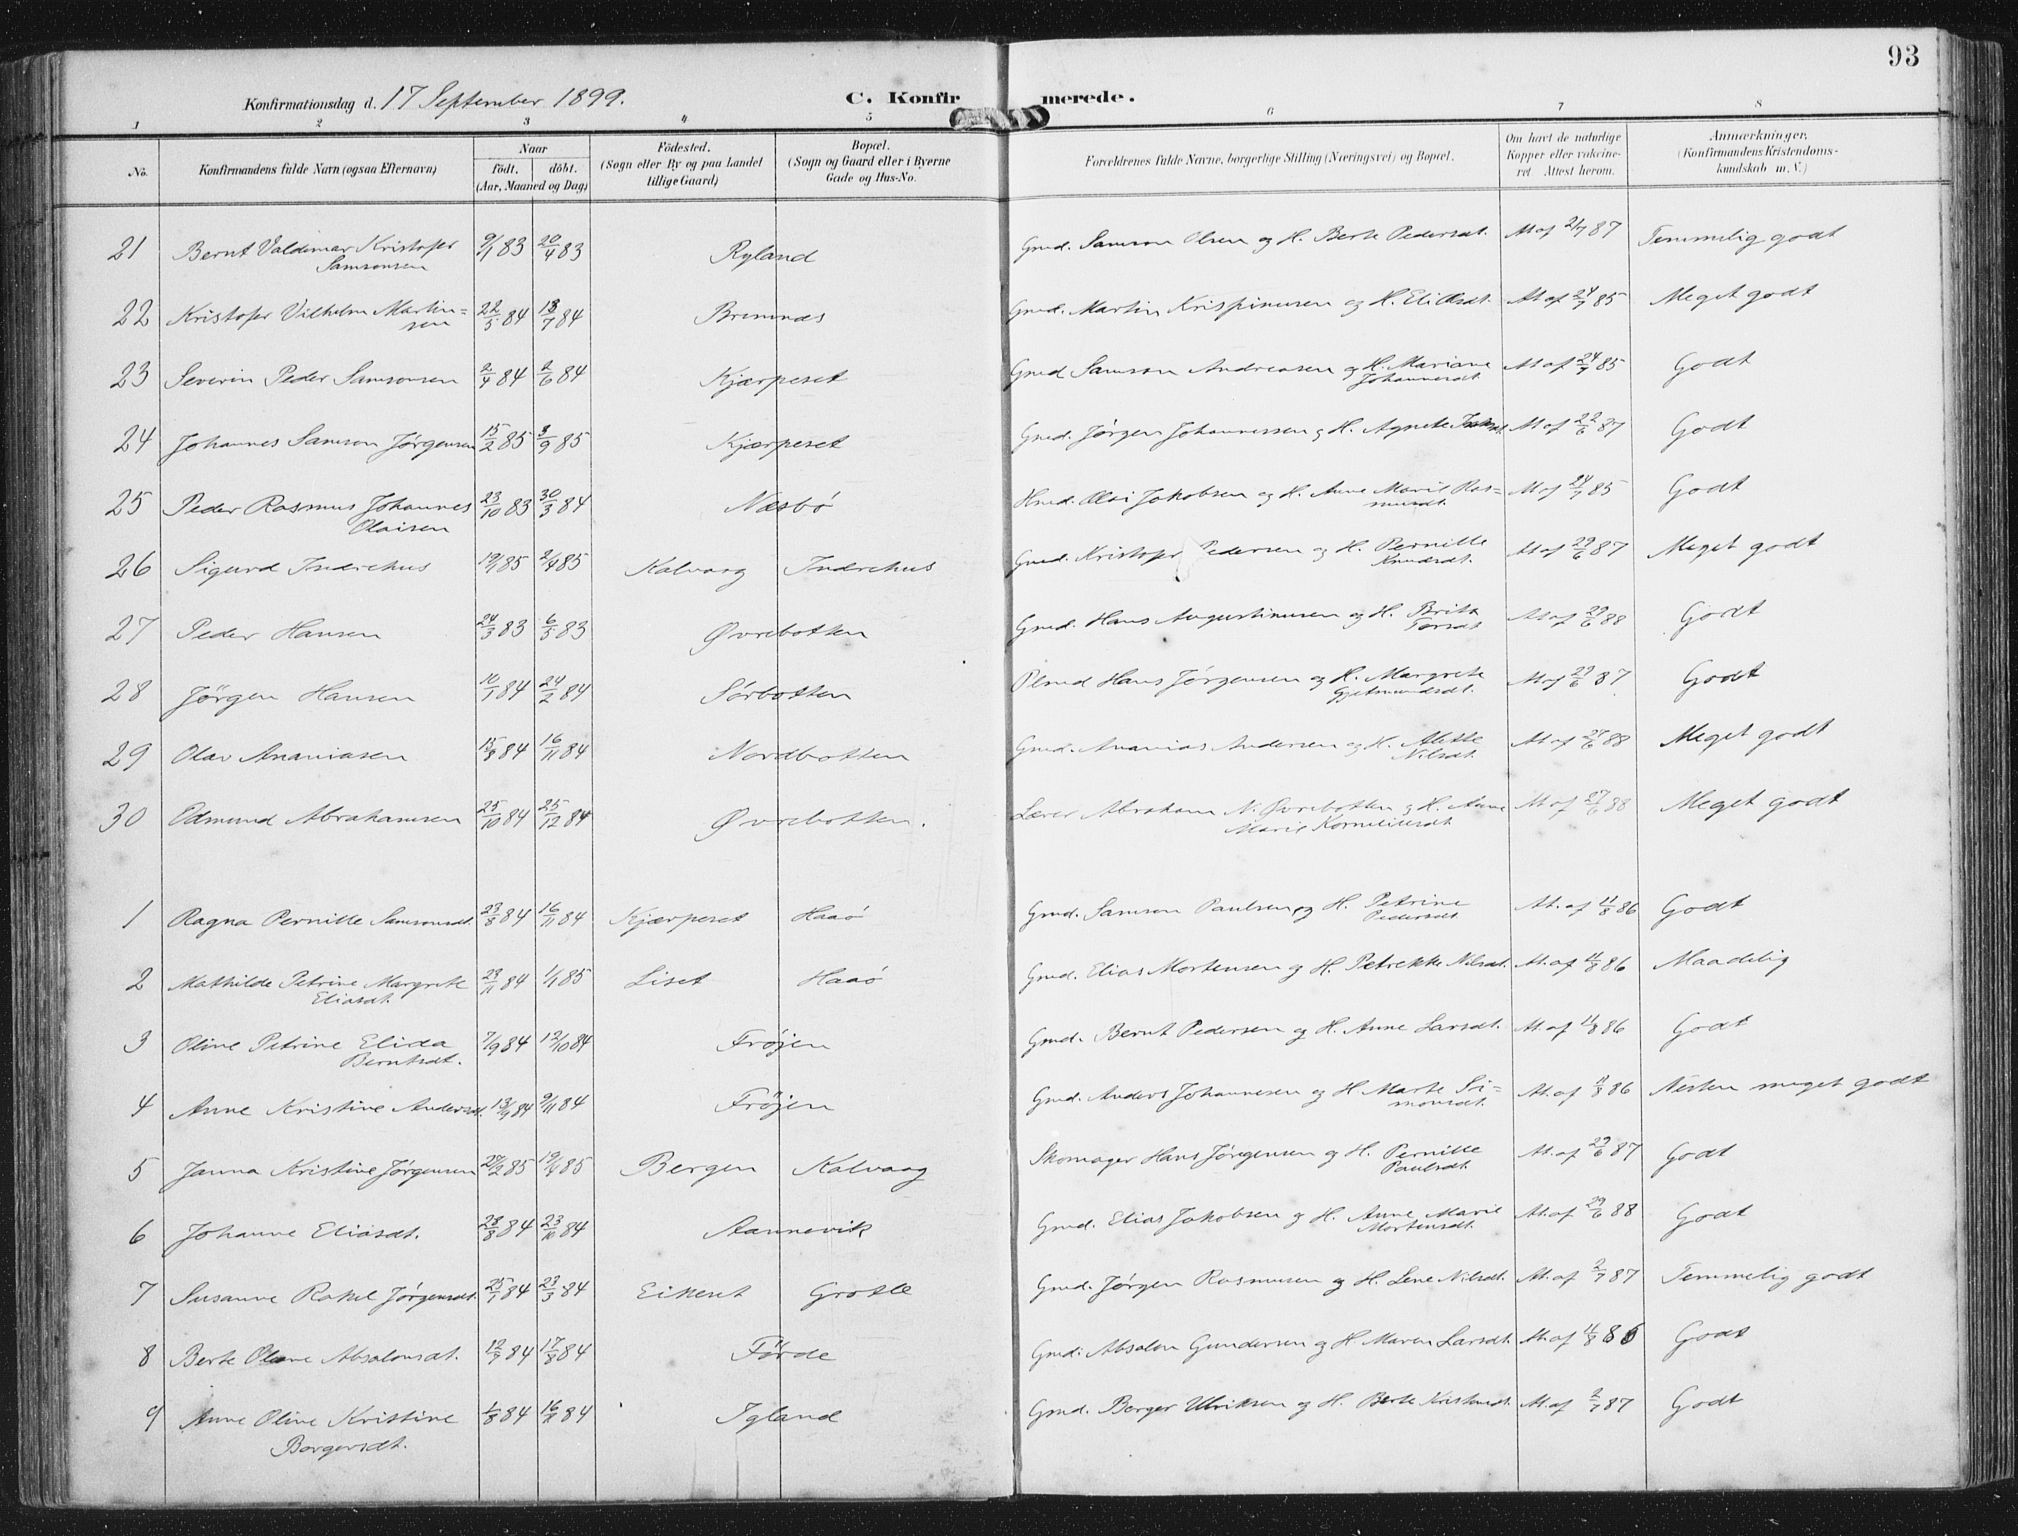 93
Konfirmationsdag d. 17 September 1899. C. Konfirmerede.
1 2 3 4 5 6 7 8
No. Konfirmandens fulde Navn (ogsaa Efternavn) Naar födt. döbt. (Aar, Maaned og Dag) Födested. (Sogn eller By og paa Landet tillige Gaard) Bopæl. (Sogn og Gaard eller i Byerne Gade og Hus-No. Forældrenes fulde Navne, borgerlige Stilling (Næringsvei) og Bopæl. Om havt de naturlige Kopper eller vakcineret Attest herom. Anmærkninger. (Konfirmandens Kristendomskundskab m. V.)
21 Bernt Valdimar Kristofer Samsonsen 9/1 83 20/4 83 Ryland Gmd. Samson Olsen og H. Berte Pedersdt. At af 2/7 87 Temmelig godt
22 Kristofer Vilhelm Martinsen 22/5 84 13/7 84 Bremnes Gmd. Martin Krispinusen og H. Eli At af 24/7 85 Meget godt
23 Severin Peder Samsonsen 2/4 84 2/6 84 Kjærpeset Gmd Samson Andreasen og H. Mariane Johannesdt. At af 24/7 85 Godt
24 Johannes Samson Jørgensen 15/2 85 3/9 85 Kjærpeset Gmd. Jørgen Johannessen og H. Agnete At af 22/6 87 Godt
25 Peder Rasmus Johannes Olaisen 23/10 83 30/3 84 Næsbø Hmd. Olai Jakobsen og H. Anne Marie Rasmusdt. At af 24/7 85 Godt
26 Sigurd Indrehus 19/1 85 2/4 85 Kalvaag Indrehus Gmd. Kristofer Pedersen og H. Pernille Knudsdt. At af 29/6 87 Meget godt
27 Peder Hansen 24/3 83 6/5 83 Øvrebotten Gmd. Hans Augustinusen og H. Brita At af 29/6 88 Godt
28 Jörgen Hansen 10/1 84 24/2 84 Sørbotten Plmd Hans Jørgensen og H. Margrete Gjetmundsdt. At af 29/6 87 Godt
29 Olav Ananiasen 15/8 84 16/11 84 Nordbotten Gmd. Ananias Andersen og H. Alette Nilsdt. At af 27/6 88 Meget godt
30 Edmund Abrahamsen 25/10 84 25/12 84 Øvrebotten. Lærer Abraham N. Øvrebotten og H. Anne Marie Korneliusdt At af 27/6 88 Meget godt
1 Ragna Pernille Samsonsdt. 23/8 84 16/11 84 Kjærpeset Haaø Gmd. Samson Paulsen og H. Petrine Pedersdt At. af 11/8 86 Godt
2 Mathilde Petrine Margrete Eliasdt. 23/11 84 1/1 85 Liset Haaø Gmd. Elias Mortensen og H. Petrekke Nilsdt. At. af 11/8 86 Maadelig
3 Oline Petrine Elida Berntsdt. 7/9 84 12/10 84 Frøjen Gmd. Bernt Pedersen og H. Anne Larsdt. At af 11/8 86 Godt
4 Anne Kristine Andersdt. 13/9 84 9/11 84 Frøjen Gmd. Anders Johannesen og H. Marte Simonsdt. At. af 11/8 86 Nesten meget godt
5 Janna Kristine Jørgensen 27/2 85 19/4 85 Bergen Kalvaag Skomager Hans Jørgensen og H. Pernille Paulsdt. At. af 29/6 87 Godt
6 Johanne Eliasdt. 28/8 84 23/10 84 Aannevik Gmd. Elias Jakobsen og H. Anne Marie Mortensdt. At. af 29/6 88 Godt
7 Susanne Rakel Jørgensdt. 25/1 84 23/3 84 Eikeset Grotle Gmd. Jørgen Rasmusen og H. Lene Nilsdt. At. af 2/7 87 Temmelig godt
8 Berte Oline Absalonsdt. 12/7 84 17/8 84 Förde Gmd. Absalon Gundersen og H. Maren Larsdt. At. af 11/8 86 Godt
9 Anne Oline Kristine Borgersdt. 1/8 84 16/11 84 Igland Gmd. Borger Ulriksen og H. Berte At. af 2/7 87 Godt